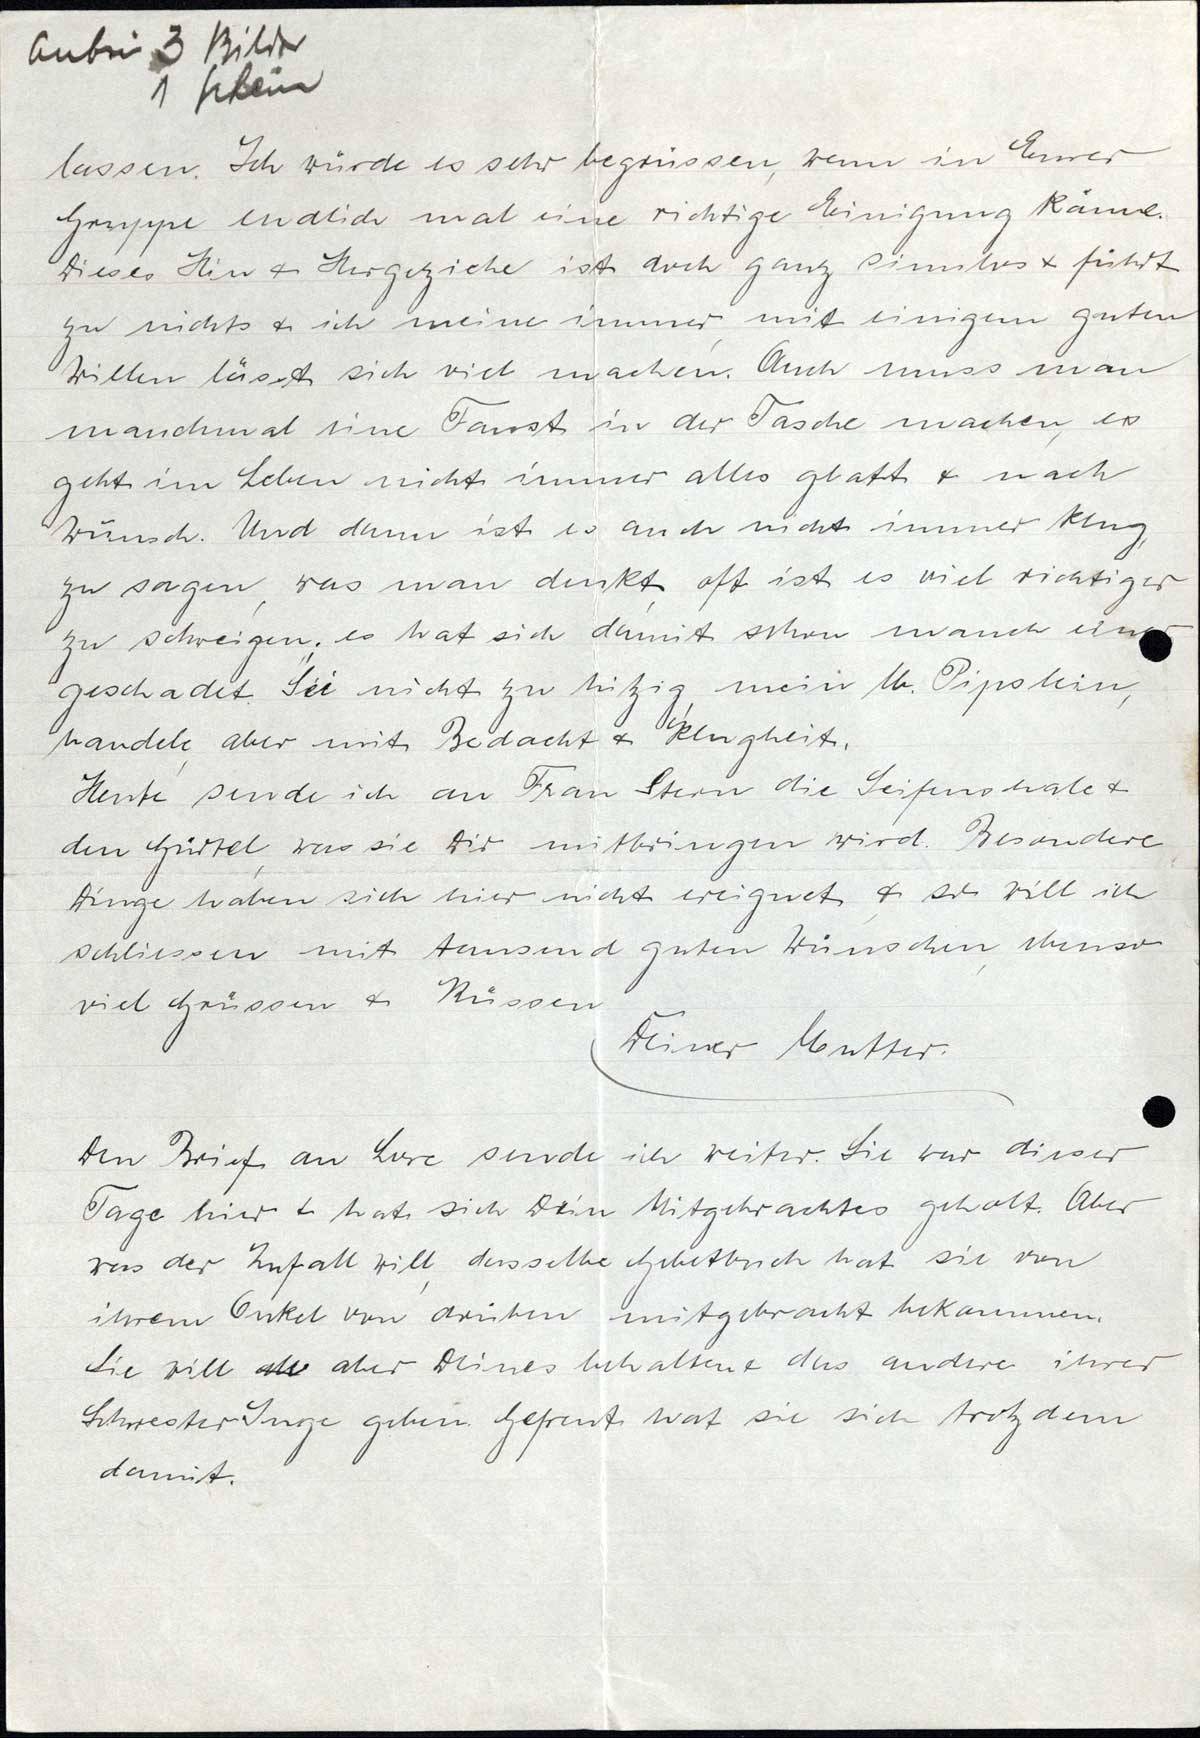 anbei 3 Bilder
1 Schein
lassen. Ich würde es sehr begrüssen, wenn in Eurer
Gruppe endlich mal eine richtige Einigung käme.
Dieses Hin & Hergeziehe ist doch ganz sinnlos & führt
zu nichts & ich meine immer, mit einigem guten
Willen lässt sich viel machen. Auch muss man
manchmal eine Faust in der Tasche machen, es
geht im Leben nicht immer alles glatt & nach
Wunsch. Und dann ist es auch nicht immer klug,
zu sagen, was man denkt, oft ist es viel richtiger
zu schweigen, es hat sich damit schon manch einer
geschadet. Sei nicht zu hitzig, mein lb. Pipslein,
handele, aber mit Bedacht & Klugheit.
Heute sende ich an Frau Stern die Seifenschale &
den Gürtel, was sie Dir mitbringen wird. Besondere
Dinge haben sich hier nicht ereignet & so will ich
schliessen mit tausend guten Wünschen, ebenso
viel Grüssen & Küssen
Deiner Mutter.
Den Brief an Lore sende ich weiter. Sie war dieser
Tage hier & hat sich Dein Mitgebrachtes geholt. Aber
was der Zufall will, dasselbe Gebetbuch hat sie von
ihrem Onkel von drüben mitgebracht bekommen.
Sie will aber Deines behalten & das andere ihrer
Schwester Inge geben. Gefreut hat sie sich trotzdem
damit.